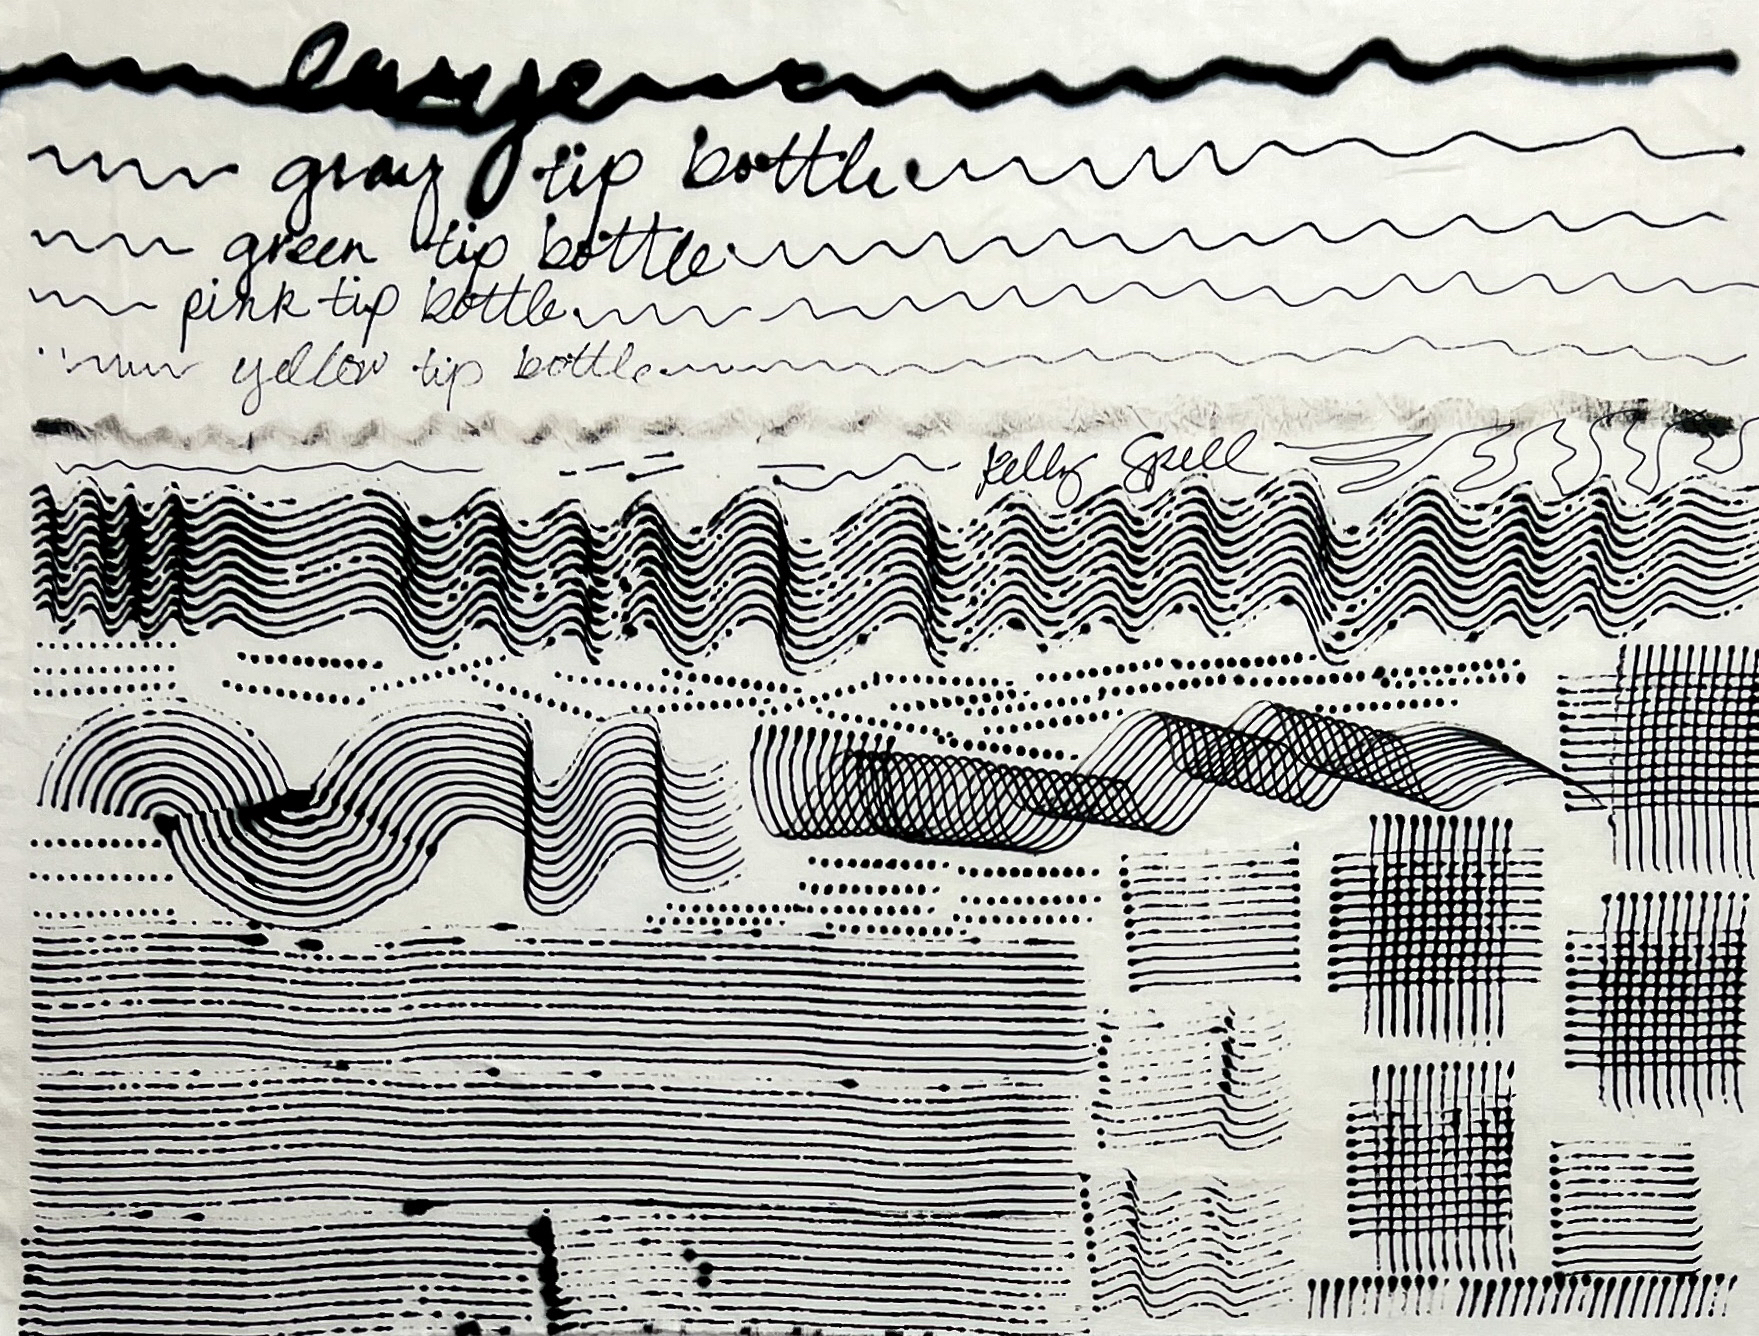 large
gray tip bottle
green tip bottle
pink tip bottle
yellow tip bottle
Kelly Spell